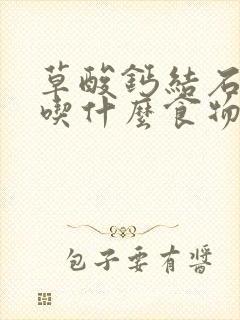 草酸鈣結石
喫什麼食物
包子要有醬